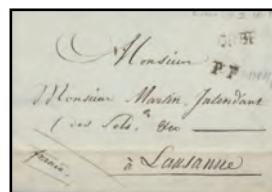 Monsieur
P.P.
Monsieur Martin, Intendant
des Sels, &c
franco
à Lausanne